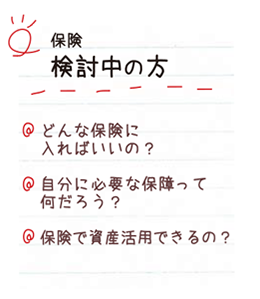 保険
検討中の方
どんな保険に
入ればいいの？
自分に必要な保障って
何だろう？
保険で資産活用できるの？